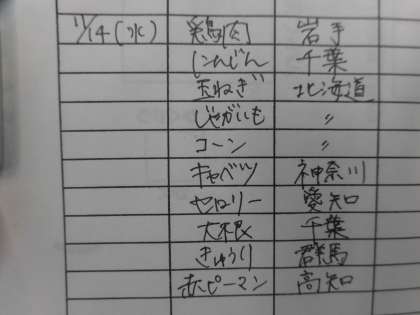 11/14(水) 鶏肉 岩手
にんじん 千葉
玉ねぎ 北海道
じゃがいも 〃
コーン 〃
キャベツ 神奈川
セロリー 愛知
大根 千葉
きゅうり 群馬
赤ピーマン 高知